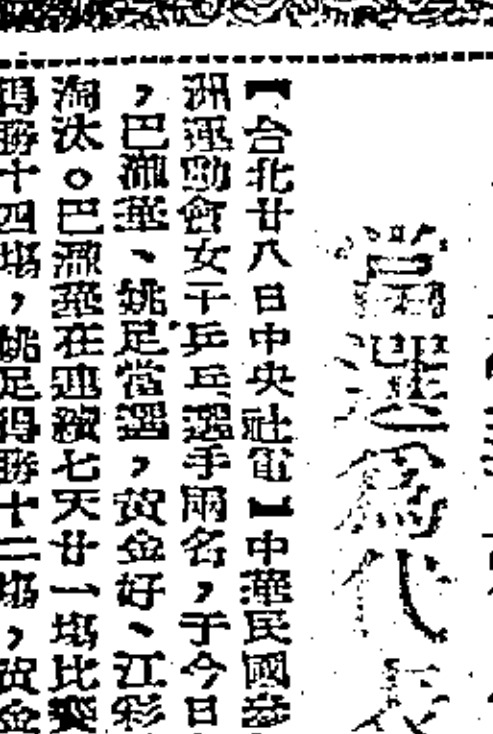 當選爲代表
【台北廿八日中央社電】中華民國參
洲運動會女子乒乓選手兩名，于今日
，巴瀛華、姚足當選，黄金好、江彩
淘汰。巴瀛華在連續七天廿一塲比賽
得勝十四塲，姚足得勝十二塲，黄金